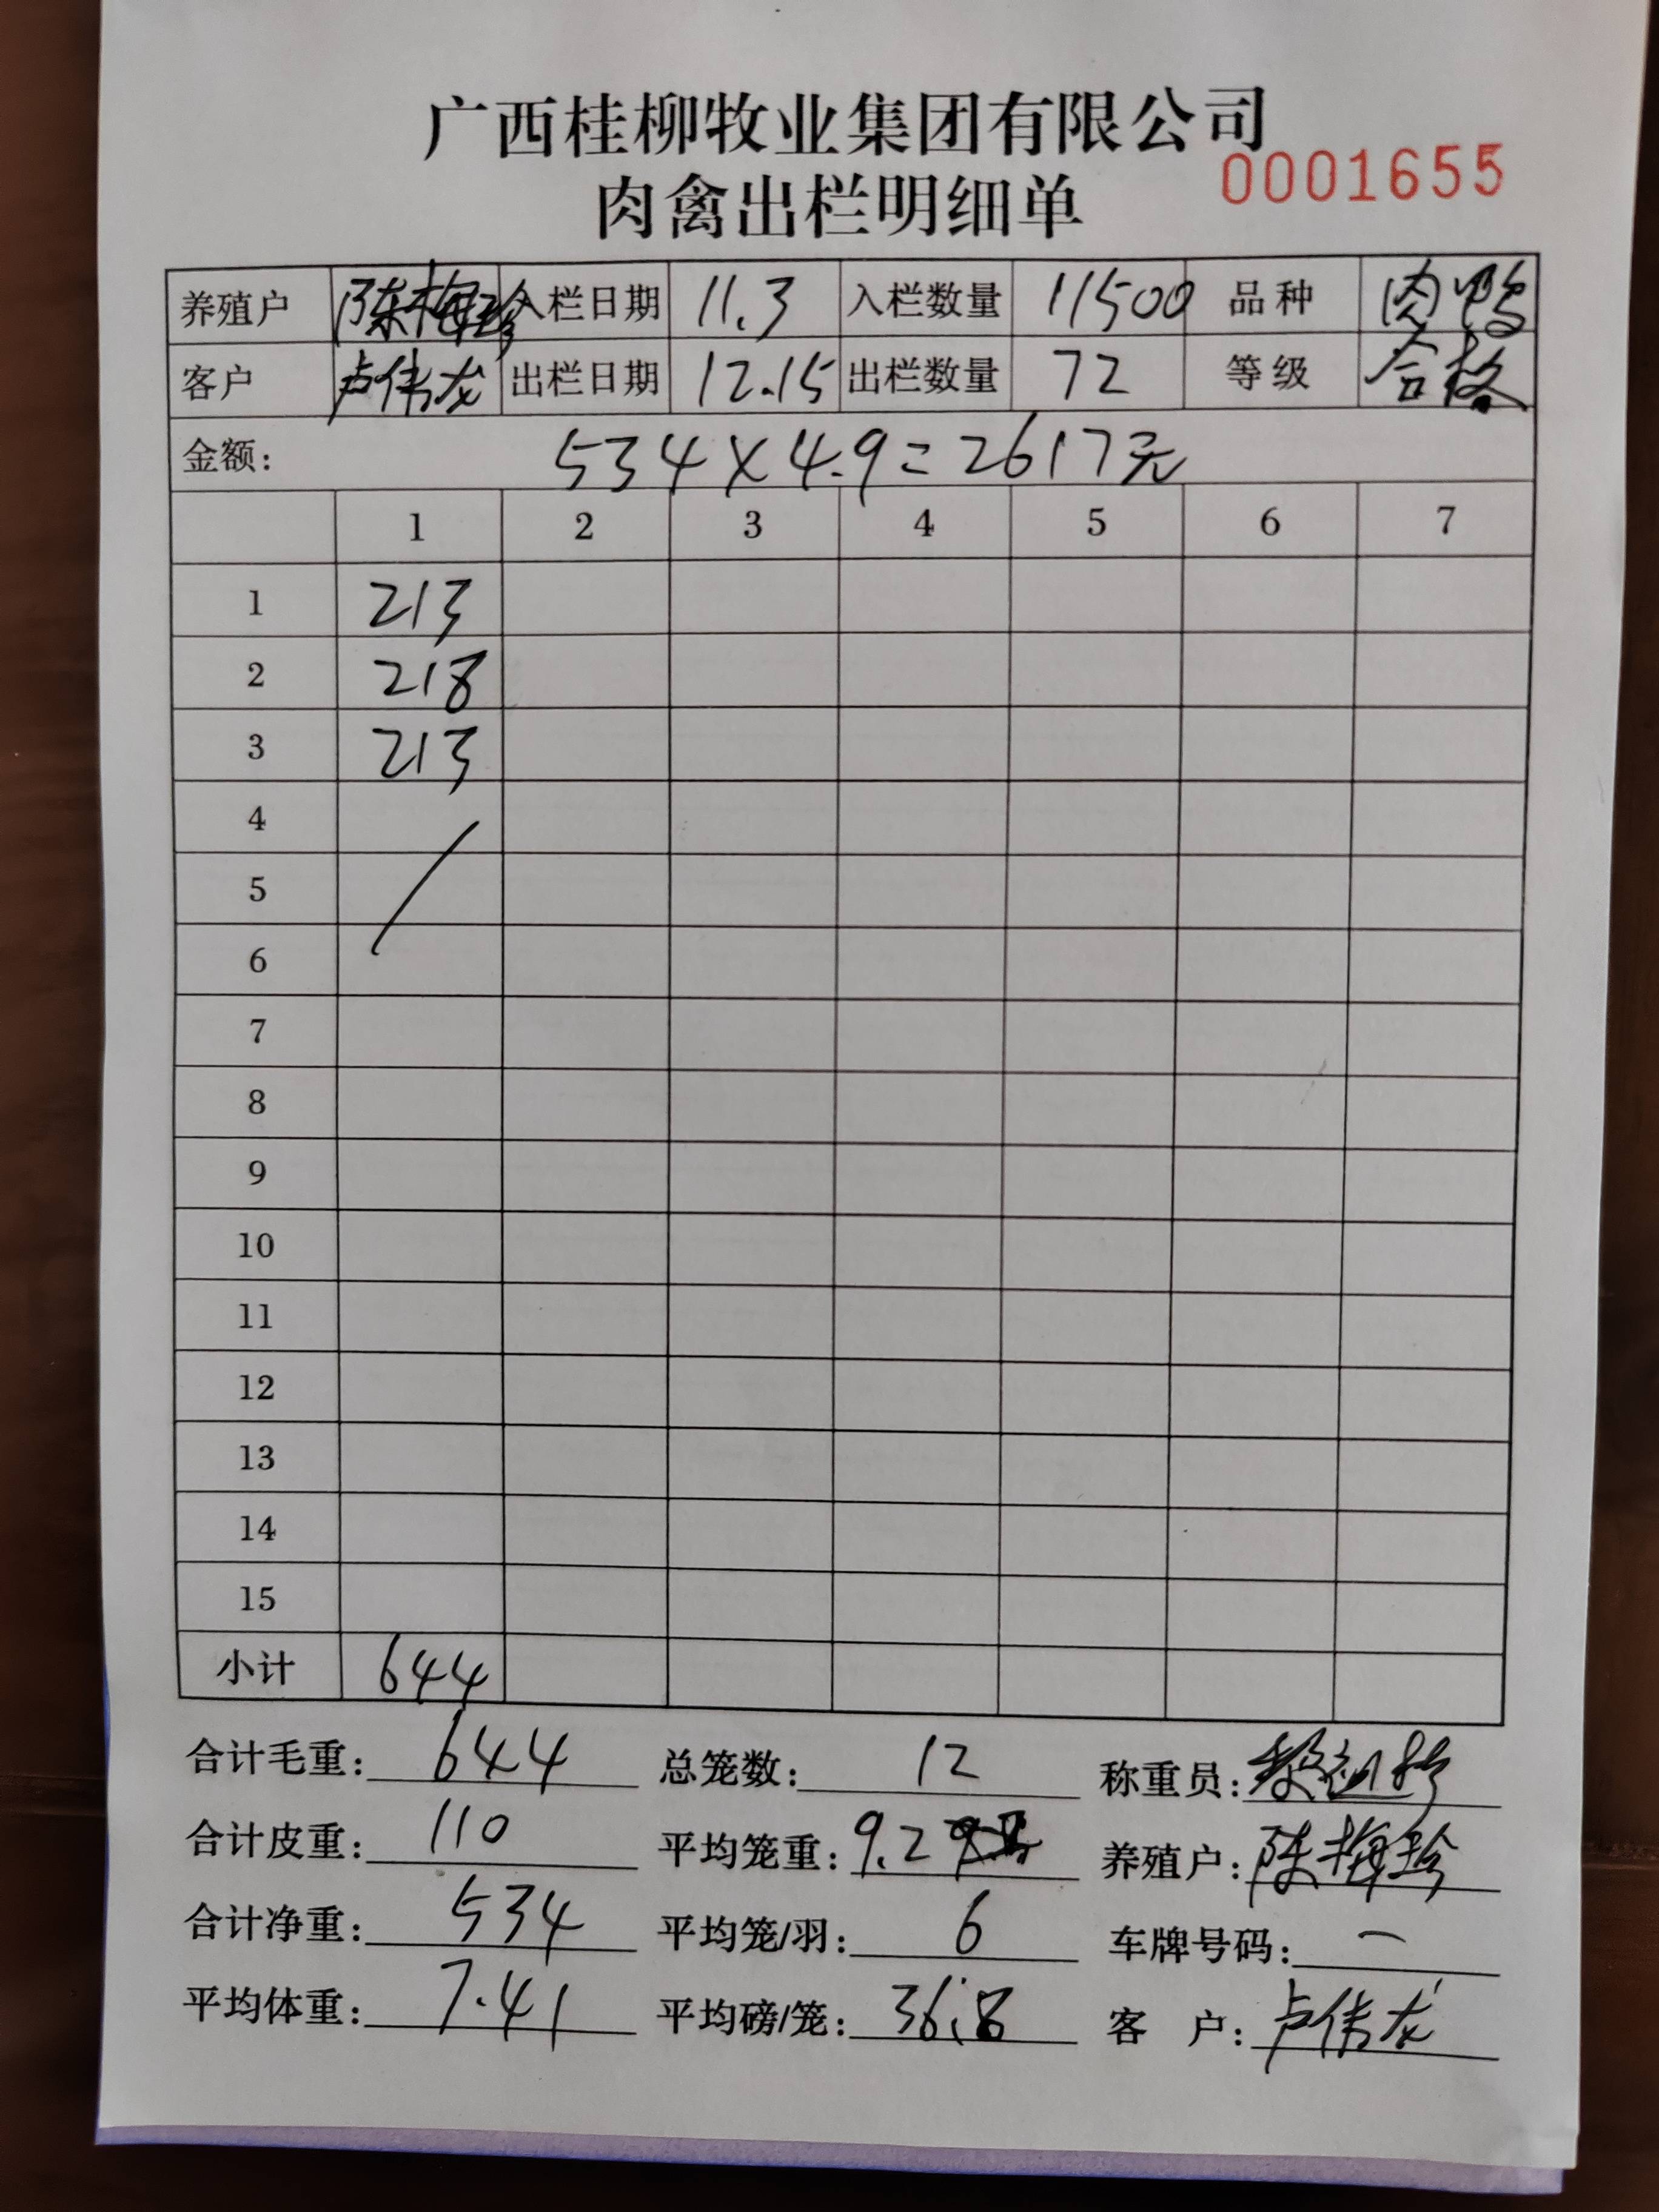 广西桂柳牧业集团有限公司
肉禽出栏明细单
0001655
养殖户 陈梅珍 入栏日期 11.3 入栏数量 11500 品种 肉鸭
客户 卢伟龙 出栏日期 12.15 出栏数量 72 等级 合格
金额: 534×4.9=2617元
1 2 3 4 5 6 7
1 213
2 218
3 213
4
5
6
7
8
9
10
11
12
13
14
15
小计 644
合计毛重: 644 总笼数: 12 称重员:
合计皮重: 110 平均笼重: 9.2 养殖户: 陈梅珍
合计净重: 534 平均笼/羽: 6 车牌号码: 一
平均体重: 7.41 平均磅/笼: 36.8 客 户: 卢伟龙